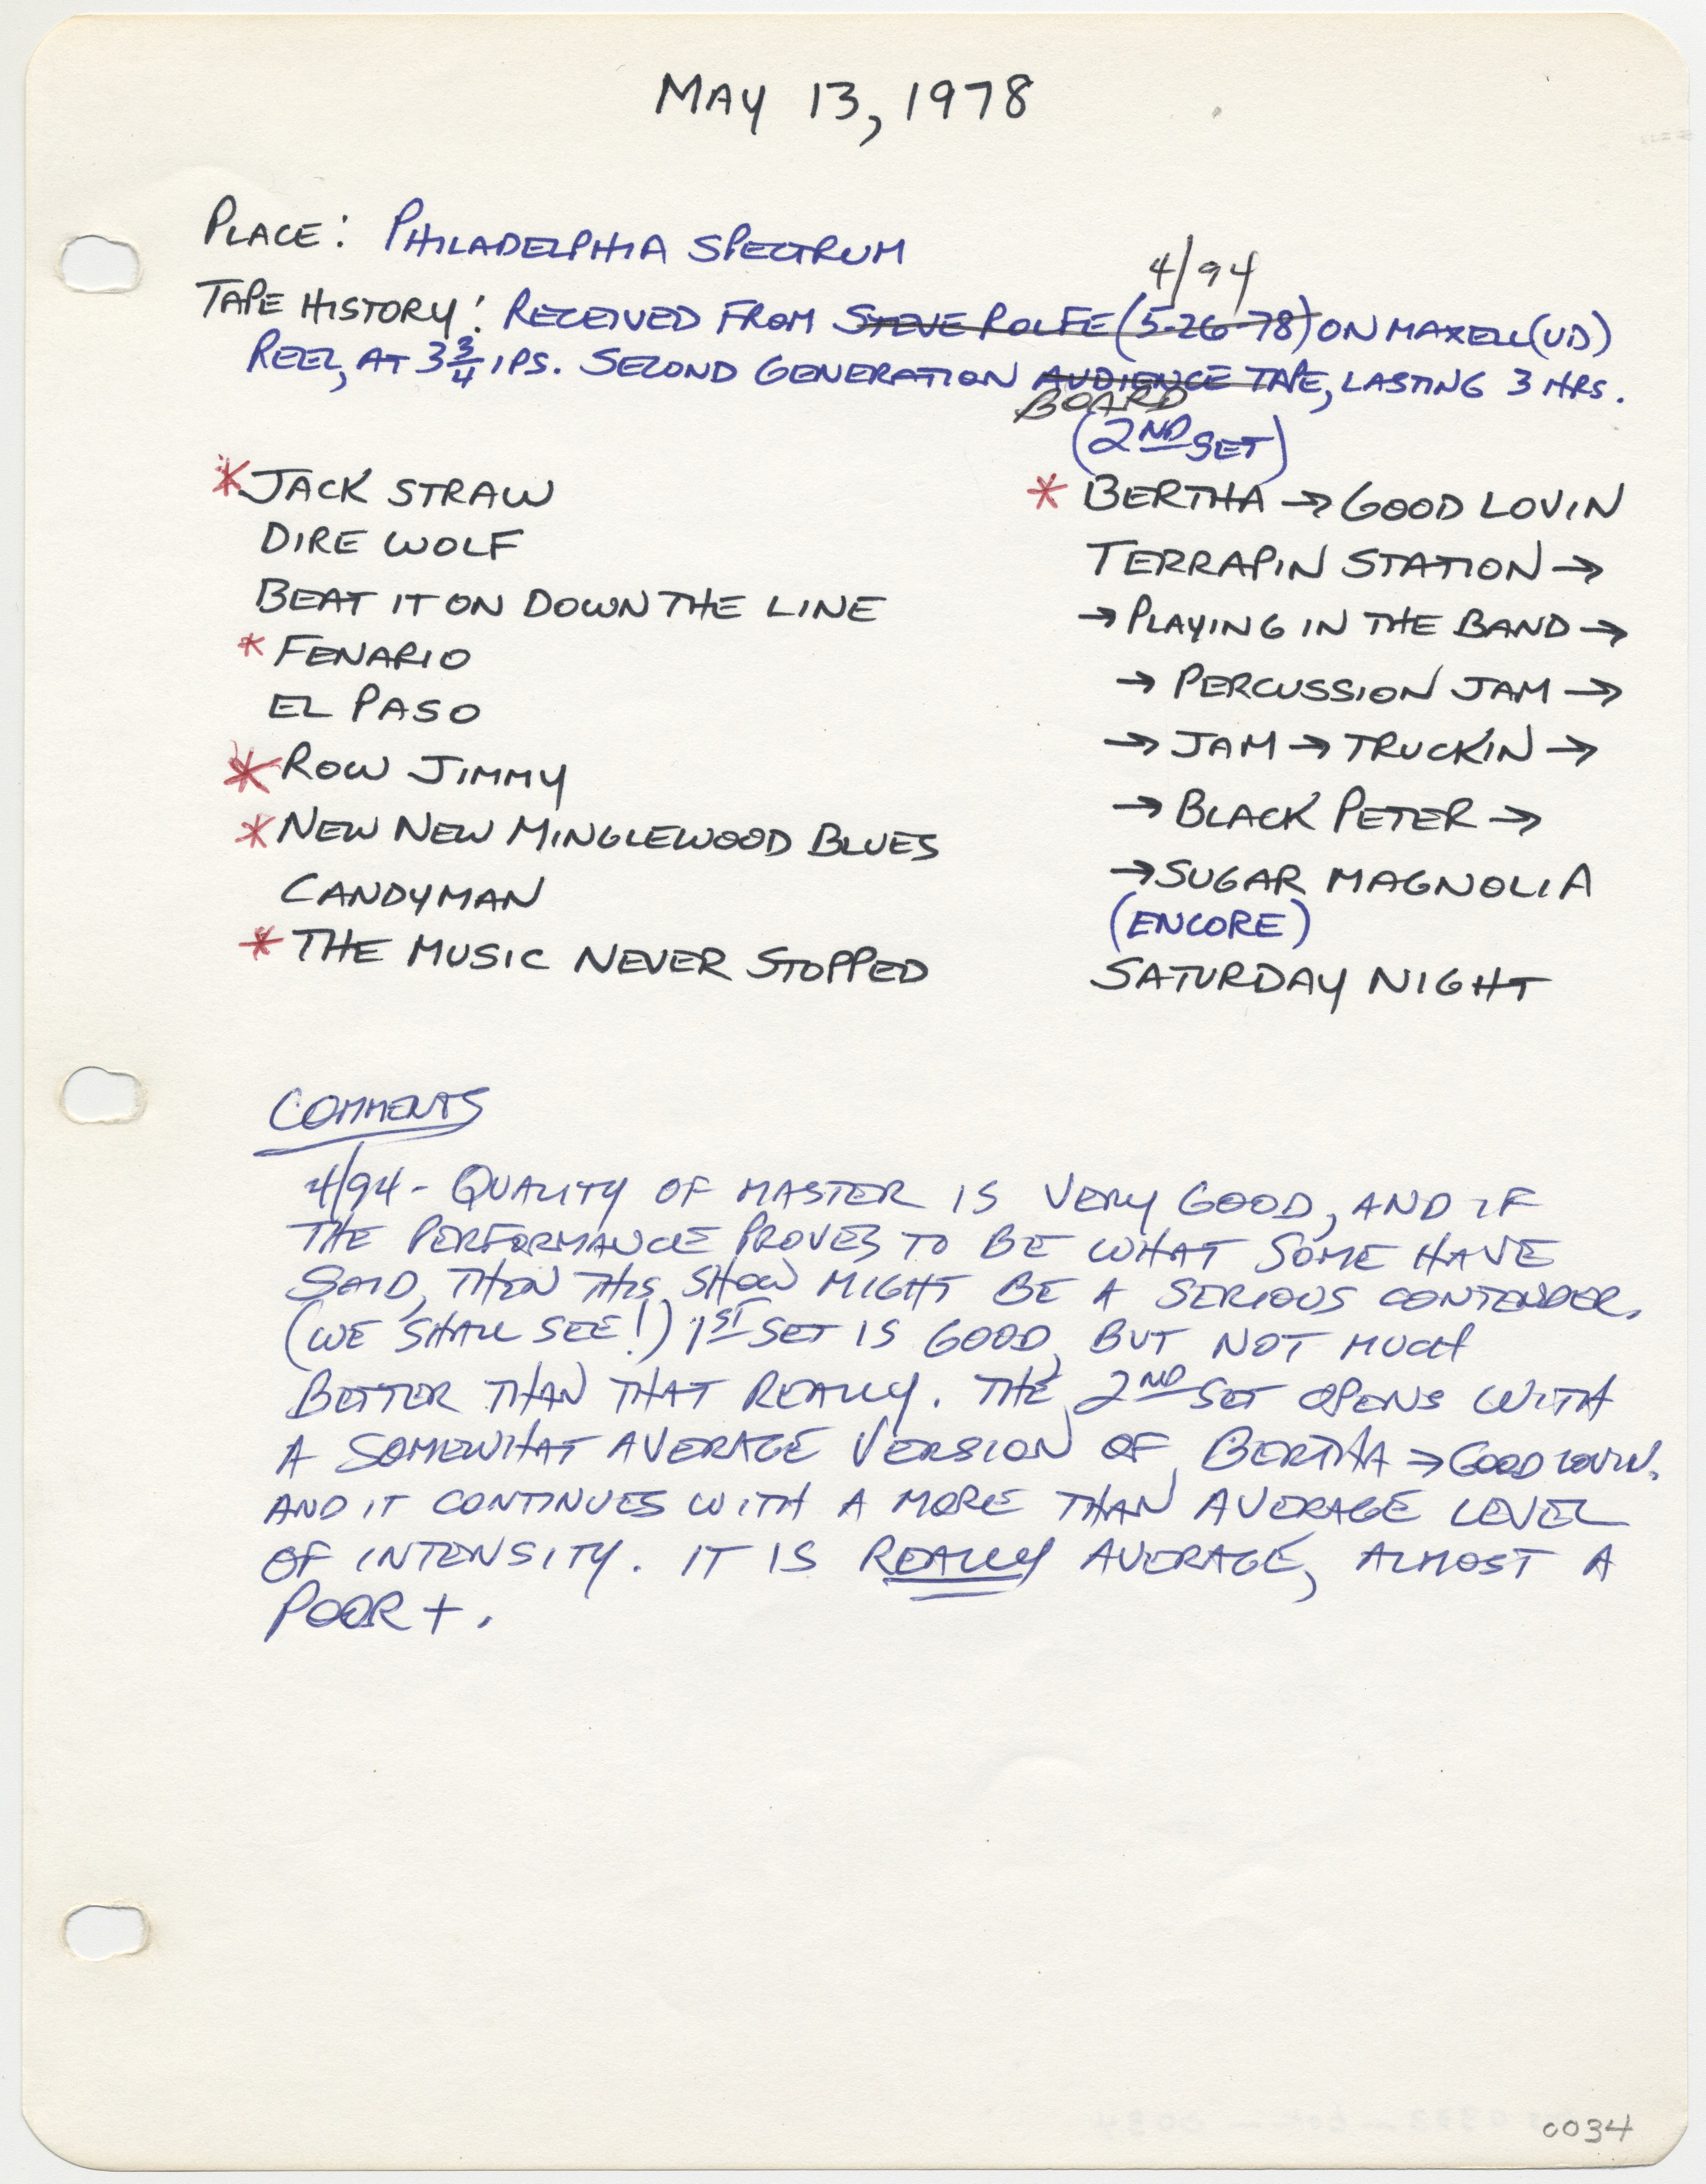 MAY 13, 1978
PLACE: PHILADELPHIA SPECTRUM
4/94
TAPE HISTORY: RECEIVED FROM STEVE ROLFE (5-26-78) ON MAXELL (UD)
REEL, AT 3 3/4 IPS. SECOND GENERATION AUDIENCE TAPE, LASTING 3 HRS.
BOARD
* JACK STRAW
DIRE WOLF
BEAT IT ON DOWN THE LINE
* FENARIO
EL PASO
* ROW JIMMY
* NEW NEW MINGLEWOOD BLUES
CANDYMAN
* THE MUSIC NEVER STOPPED
(2ND SET)
* BERTHA → GOOD LOVIN
TERRAPIN STATION →
→ PLAYING IN THE BAND →
→ PERCUSSION JAM →
→ JAM → TRUCKIN →
→ BLACK PETER →
→ SUGAR MAGNOLIA
(ENCORE)
SATURDAY NIGHT
COMMENTS
4/94 - QUALITY OF MASTER IS VERY GOOD, AND IF
THE PERFORMANCE PROVES TO BE WHAT SOME HAVE
SAID, THEN THIS SHOW MIGHT BE A SERIOUS CONTENDER.
(WE SHALL SEE!) 1ST SET IS GOOD, BUT NOT MUCH
BETTER THAN THAT REALLY. THE 2ND SET OPENS WITH
A SOMEWHAT AVERAGE VERSION OF BERTHA → GOOD LOVIN.
AND IT CONTINUES WITH A MORE THAN AVERAGE LEVEL
OF INTENSITY. IT IS REALLY AVERAGE, ALMOST A
POOR +.
0034